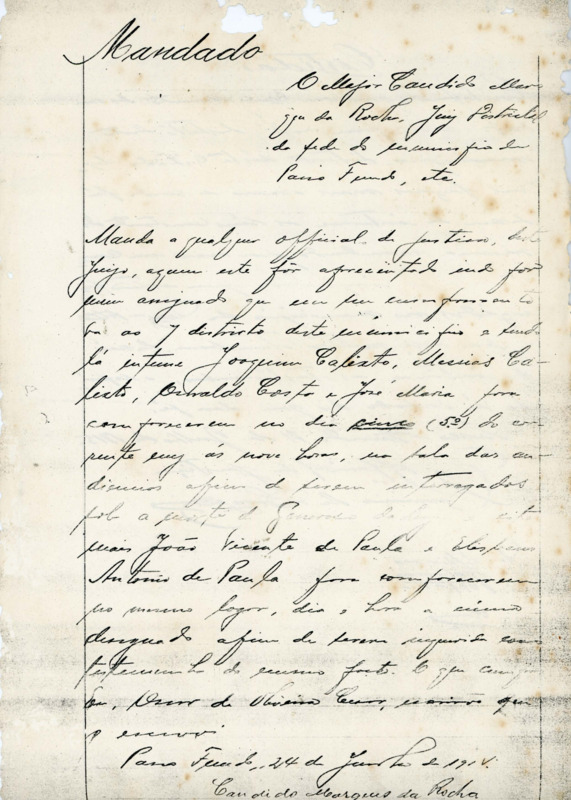 Mandado
O Major Candido Mar
ques da Rocha, Juiz Districtal
da séde do municipio de
Passo Fundo, etc.
Manda a qualquer official de justiça, deste
Juizo, a quem este fôr aprezentado indo por
mim assignado que em seu cumprimento
vá ao 7 districto deste municipio e sendo
lá intime Joaquim Calixto, Messias Ca-
lixto, Osvaldo Costa e José Maria para
comparecerem no dia cinco (5º) do cor
rente mez ás nove horas, na sala das au-
diencias afim de serem interrogados
sob a morte de
mais João Vicente de Paula e
Antonio de Paula para comparecerem
no mesmo logar, dia e hora a cima
designado afim de serem inquerido como
testemunha do mesmo facto. O que cumpra
Eu, de Oliveira escrivão que
o escrevi
Passo Fundo, 24 de Junho de 191
Candido Marques da Rocha